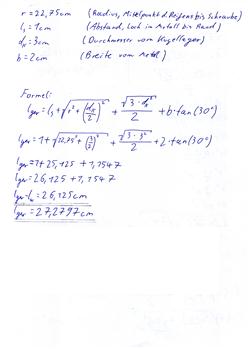 r = 22,75cm (Radius, Mittelpunkt d. Reifens bis Schraube)
l₁ = 1cm (Abstand, Loch im Metall bis Rand)
d_k = 3cm (Durchmesser vom Kugellager)
b = 2cm (Breite vom Metall)
Formel:
l_ges = l₁ + √(r² + (d_k/2)²) + √(3 · d_k²)/2 + b · tan(30°)
l_ges = 1 + √(22,75² + (3/2)²) + √(3 · 3²)/2 + 2 · tan(30°)
l_ges = 1 + 25,125 + 1,1547
l_ges = 26,125 + 1,1547
26,125cm
l_ges = 27,2797cm